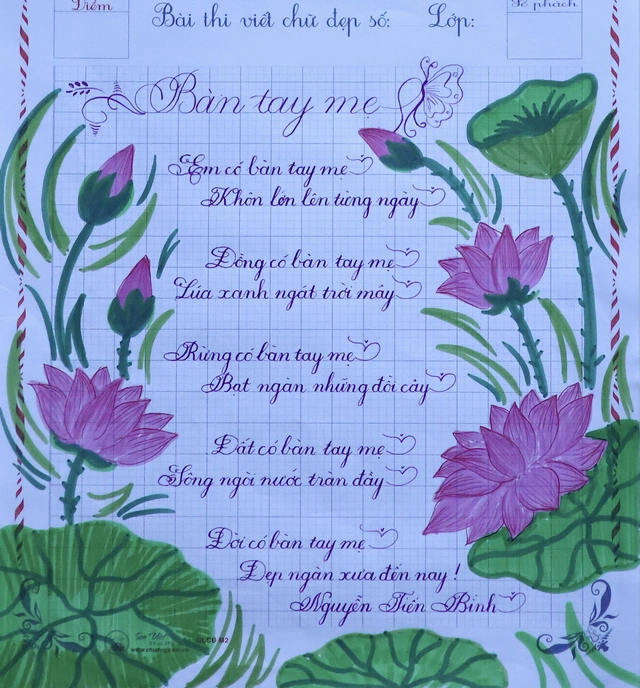 Điểm
Bài thi viết chữ đẹp số: Lớp: Số phách
Bàn tay mẹ
Em có bàn tay mẹ
Khôn lớn lên từng ngày
Đồng có bàn tay mẹ
Lúa xanh ngát trời mây
Rừng có bàn tay mẹ
Bạt ngàn những đồi cây
Đất có bàn tay mẹ
Sông ngòi nước tràn đầy
Đời có bàn tay mẹ
Đẹp ngàn xưa đến nay !
Nguyễn Tiến Bình